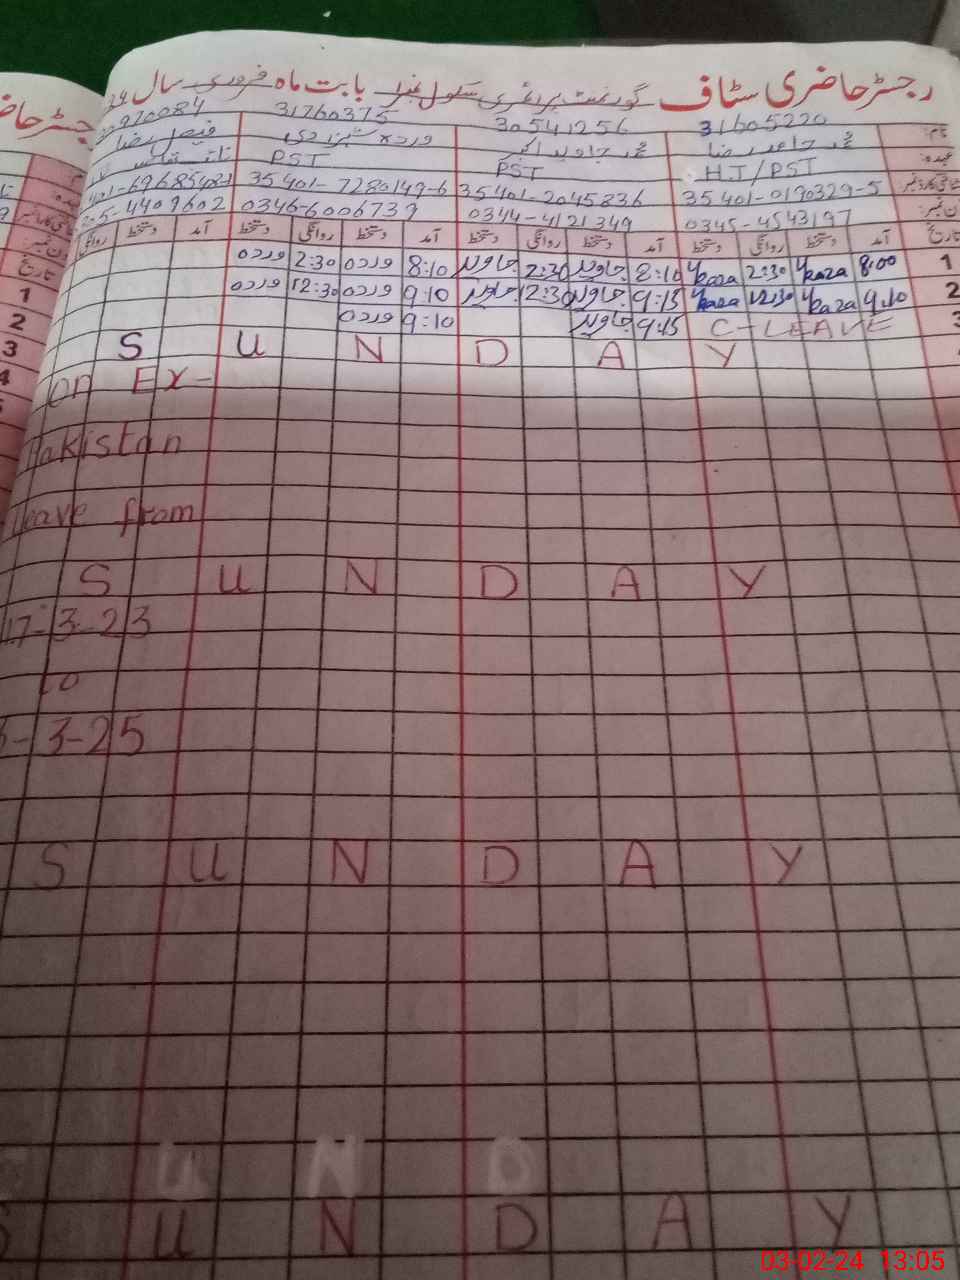 رجسٹر حاضری سٹاف گورنمنٹ پرائمری سکول نمبر بابت ماہ فروری سال
31605220 30541256 31760375 970084
نام: محمد حامد رضا محمد جاوید وردہ شہزادی فیصل رضا
عہدہ: H.T/PST PST PST
35401-0190329-5 35401-2045836 35401-7280149-6 401-6968548
0345-4543197 0344-4121349 0346-6006739 4409602
تاریخ آمد دستخط روانگی دستخط آمد دستخط روانگی دستخط آمد دستخط روانگی دستخط آمد دستخط روانگی
1 8:00 2:30 8:10 جاوید 2:30 جاوید 8:10 وردہ 2:30 وردہ
2 9:10 12:30 9:15 جاوید 12:30 جاوید 9:10 وردہ 12:30 وردہ
3 C-LEAVE 9:15 جاوید 9:10 وردہ
S U N D A Y
on Ex-
Pakistan
leave from
S U N D A Y
17-3-23
to
-3-25
S U N D A Y
U N D
S U N D A Y
03-02-24 13:05